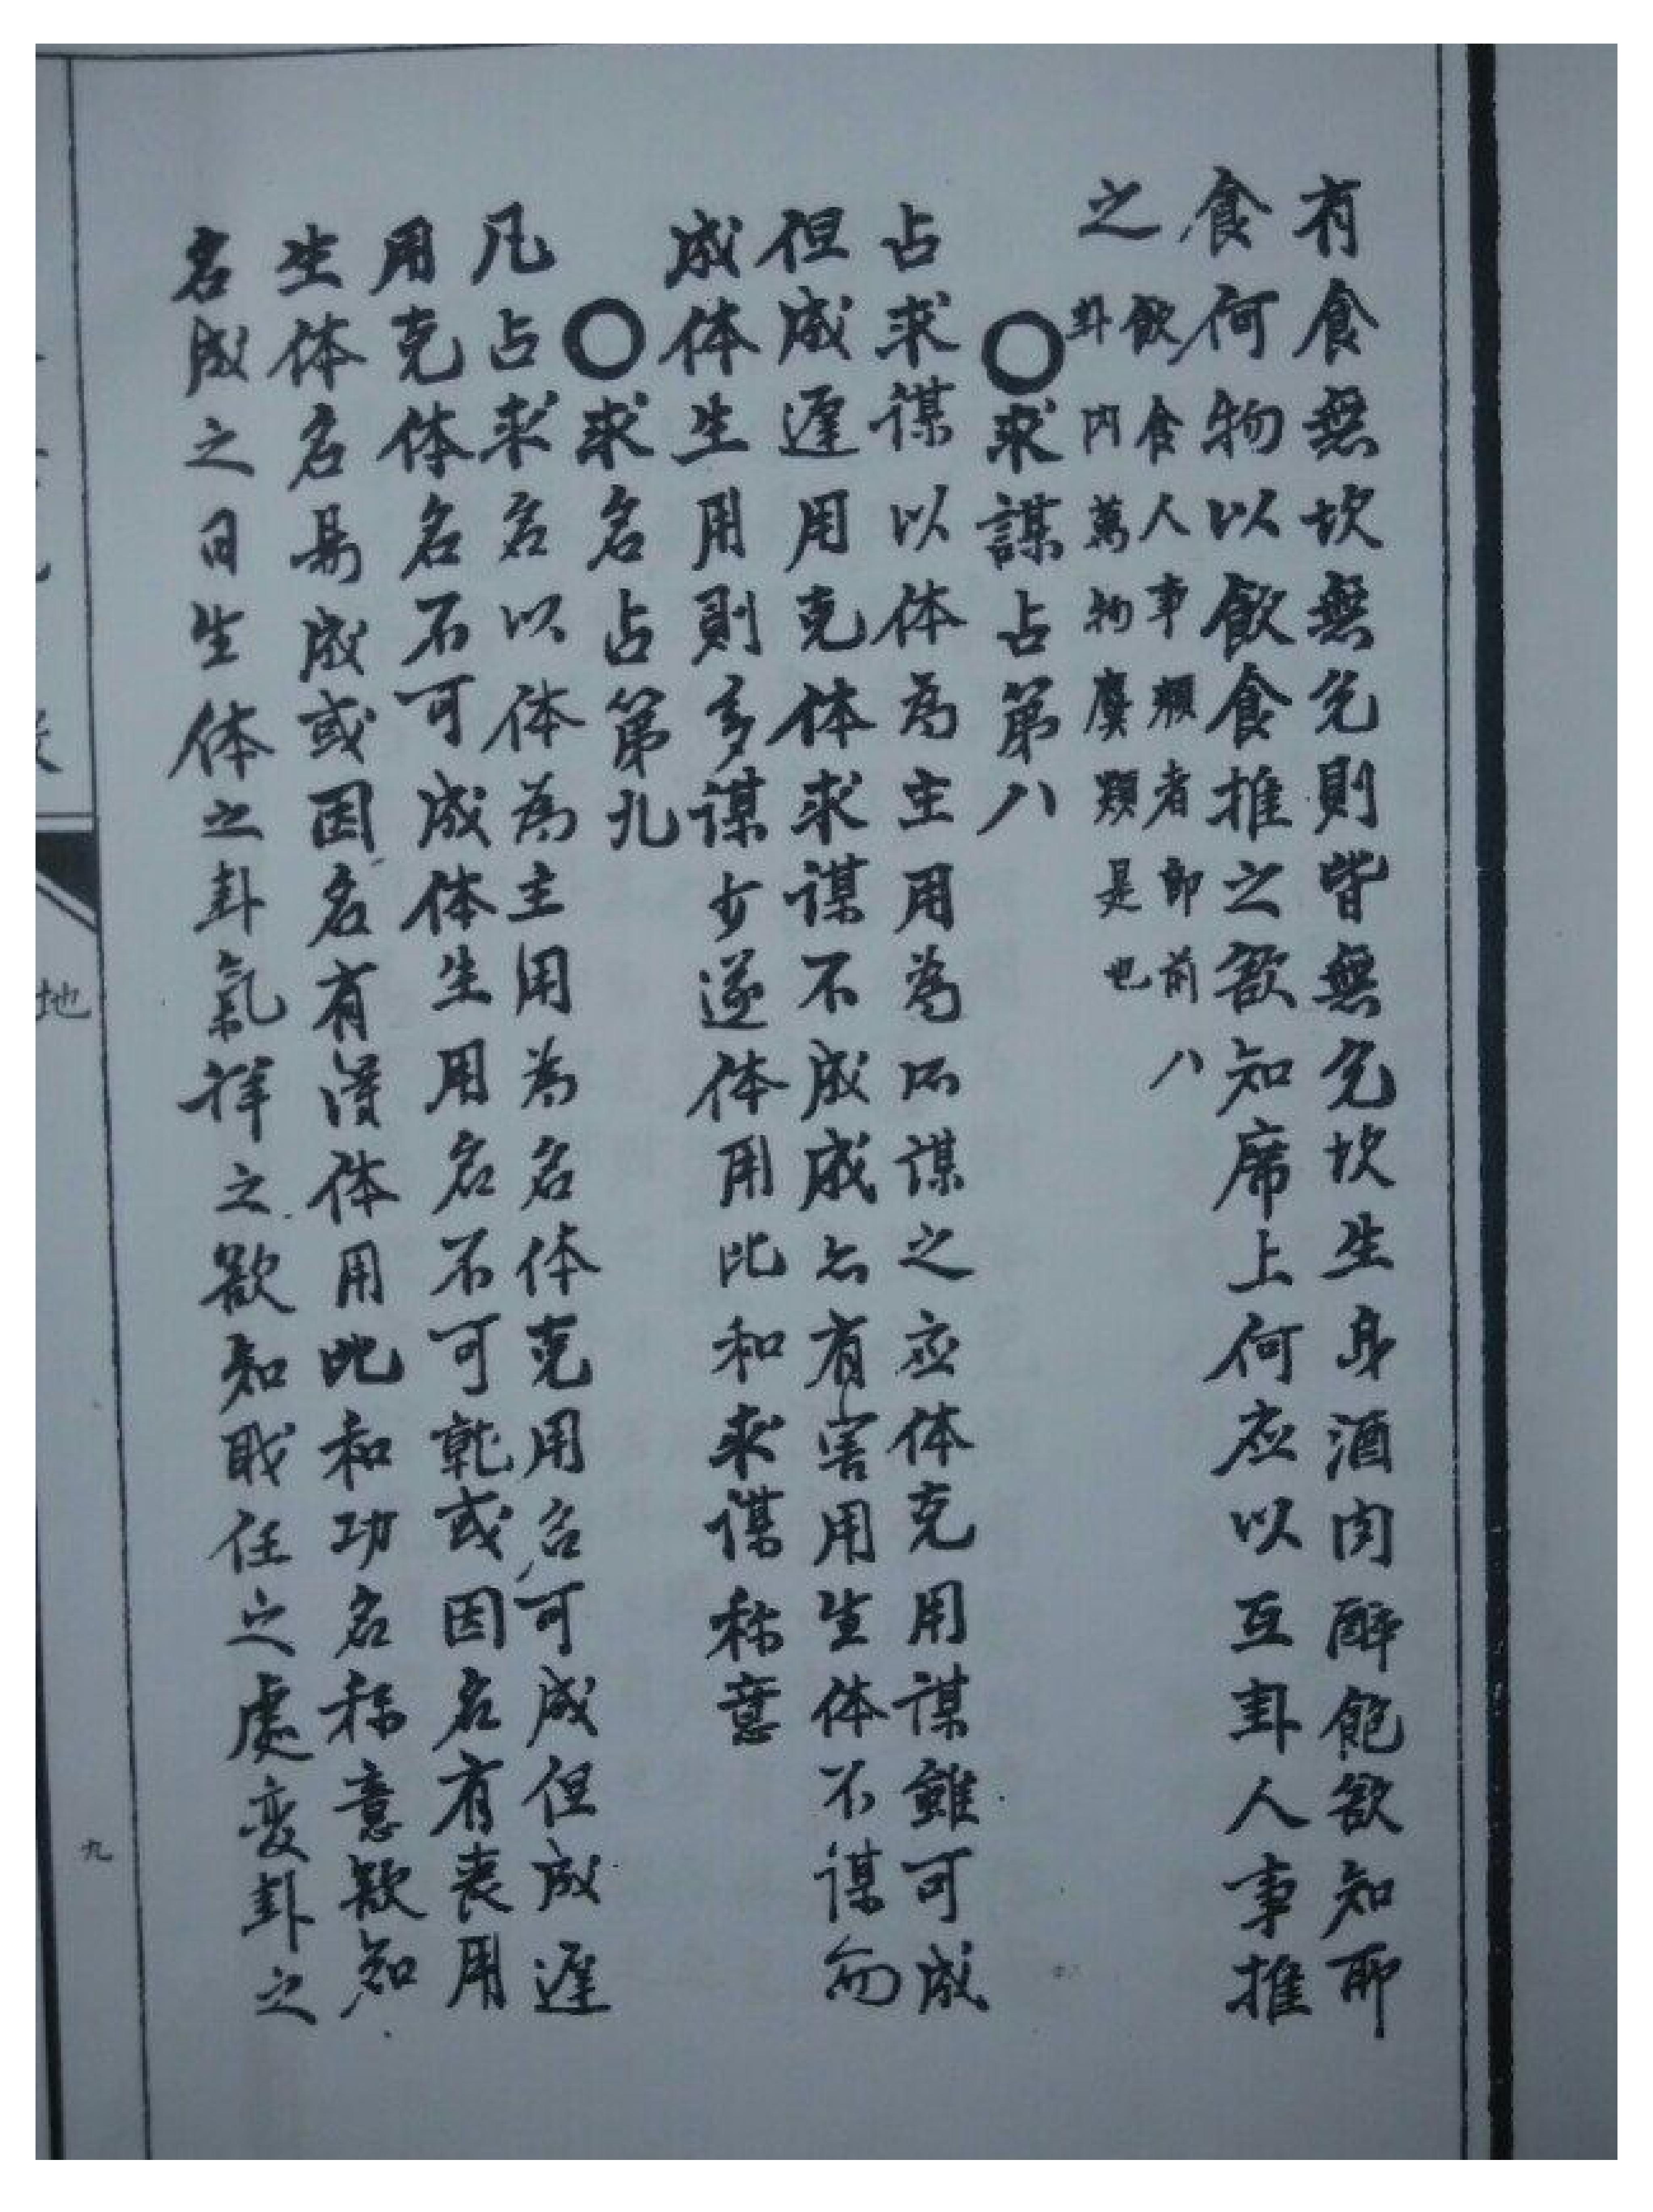 有食無坎無兌則皆無兌坎生身酒肉醉飽欲知所
食何物以飲食推之欲知席上何应以互卦人事推
之
飲食人事類者即前八
卦内萬物屬類是也
〇求謀占第八
占求謀以体為主用為所謀之应体克用謀雖可成
但成遲用克体求谋不成成亦有害用生体不谋而
成体生用則多谋少遂体用比和求谋称意
〇求名占第九
凡占求名以体為主用為名体克用名可成但成遲
用克体名不可成体生用名不可乾或因名有丧用
生体名易成或因名有得体用比和功名称意欲知
名成之日生体之卦氣祥之欲知职任之處变卦之
地
九